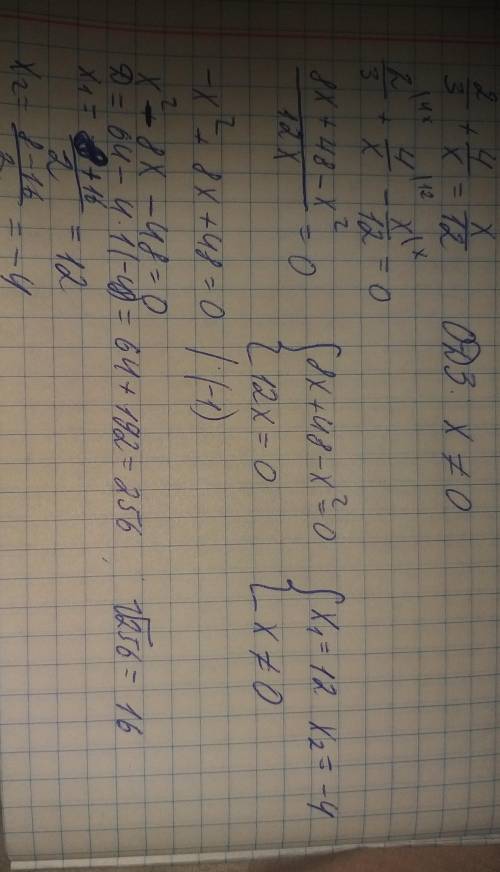 2/3 + 4/x = x/12    ОДЗ. x ≠ 0
2/3 \4x + 4/x \12 - x/12 \x = 0
(8x + 48 - x²)/(12x) = 0    { 8x + 48 - x² = 0    { x₁ = 12  x₂ = -4
{ 12x = 0    { x ≠ 0
-x² + 8x + 48 = 0 | · (-1)
x² - 8x - 48 = 0
D = 64 - 4 · 1(-48) = 64 + 192 = 256    √256 = 16
x₁ = (8 + 16)/2 = 12
x₂ = (8 - 16)/2 = -4